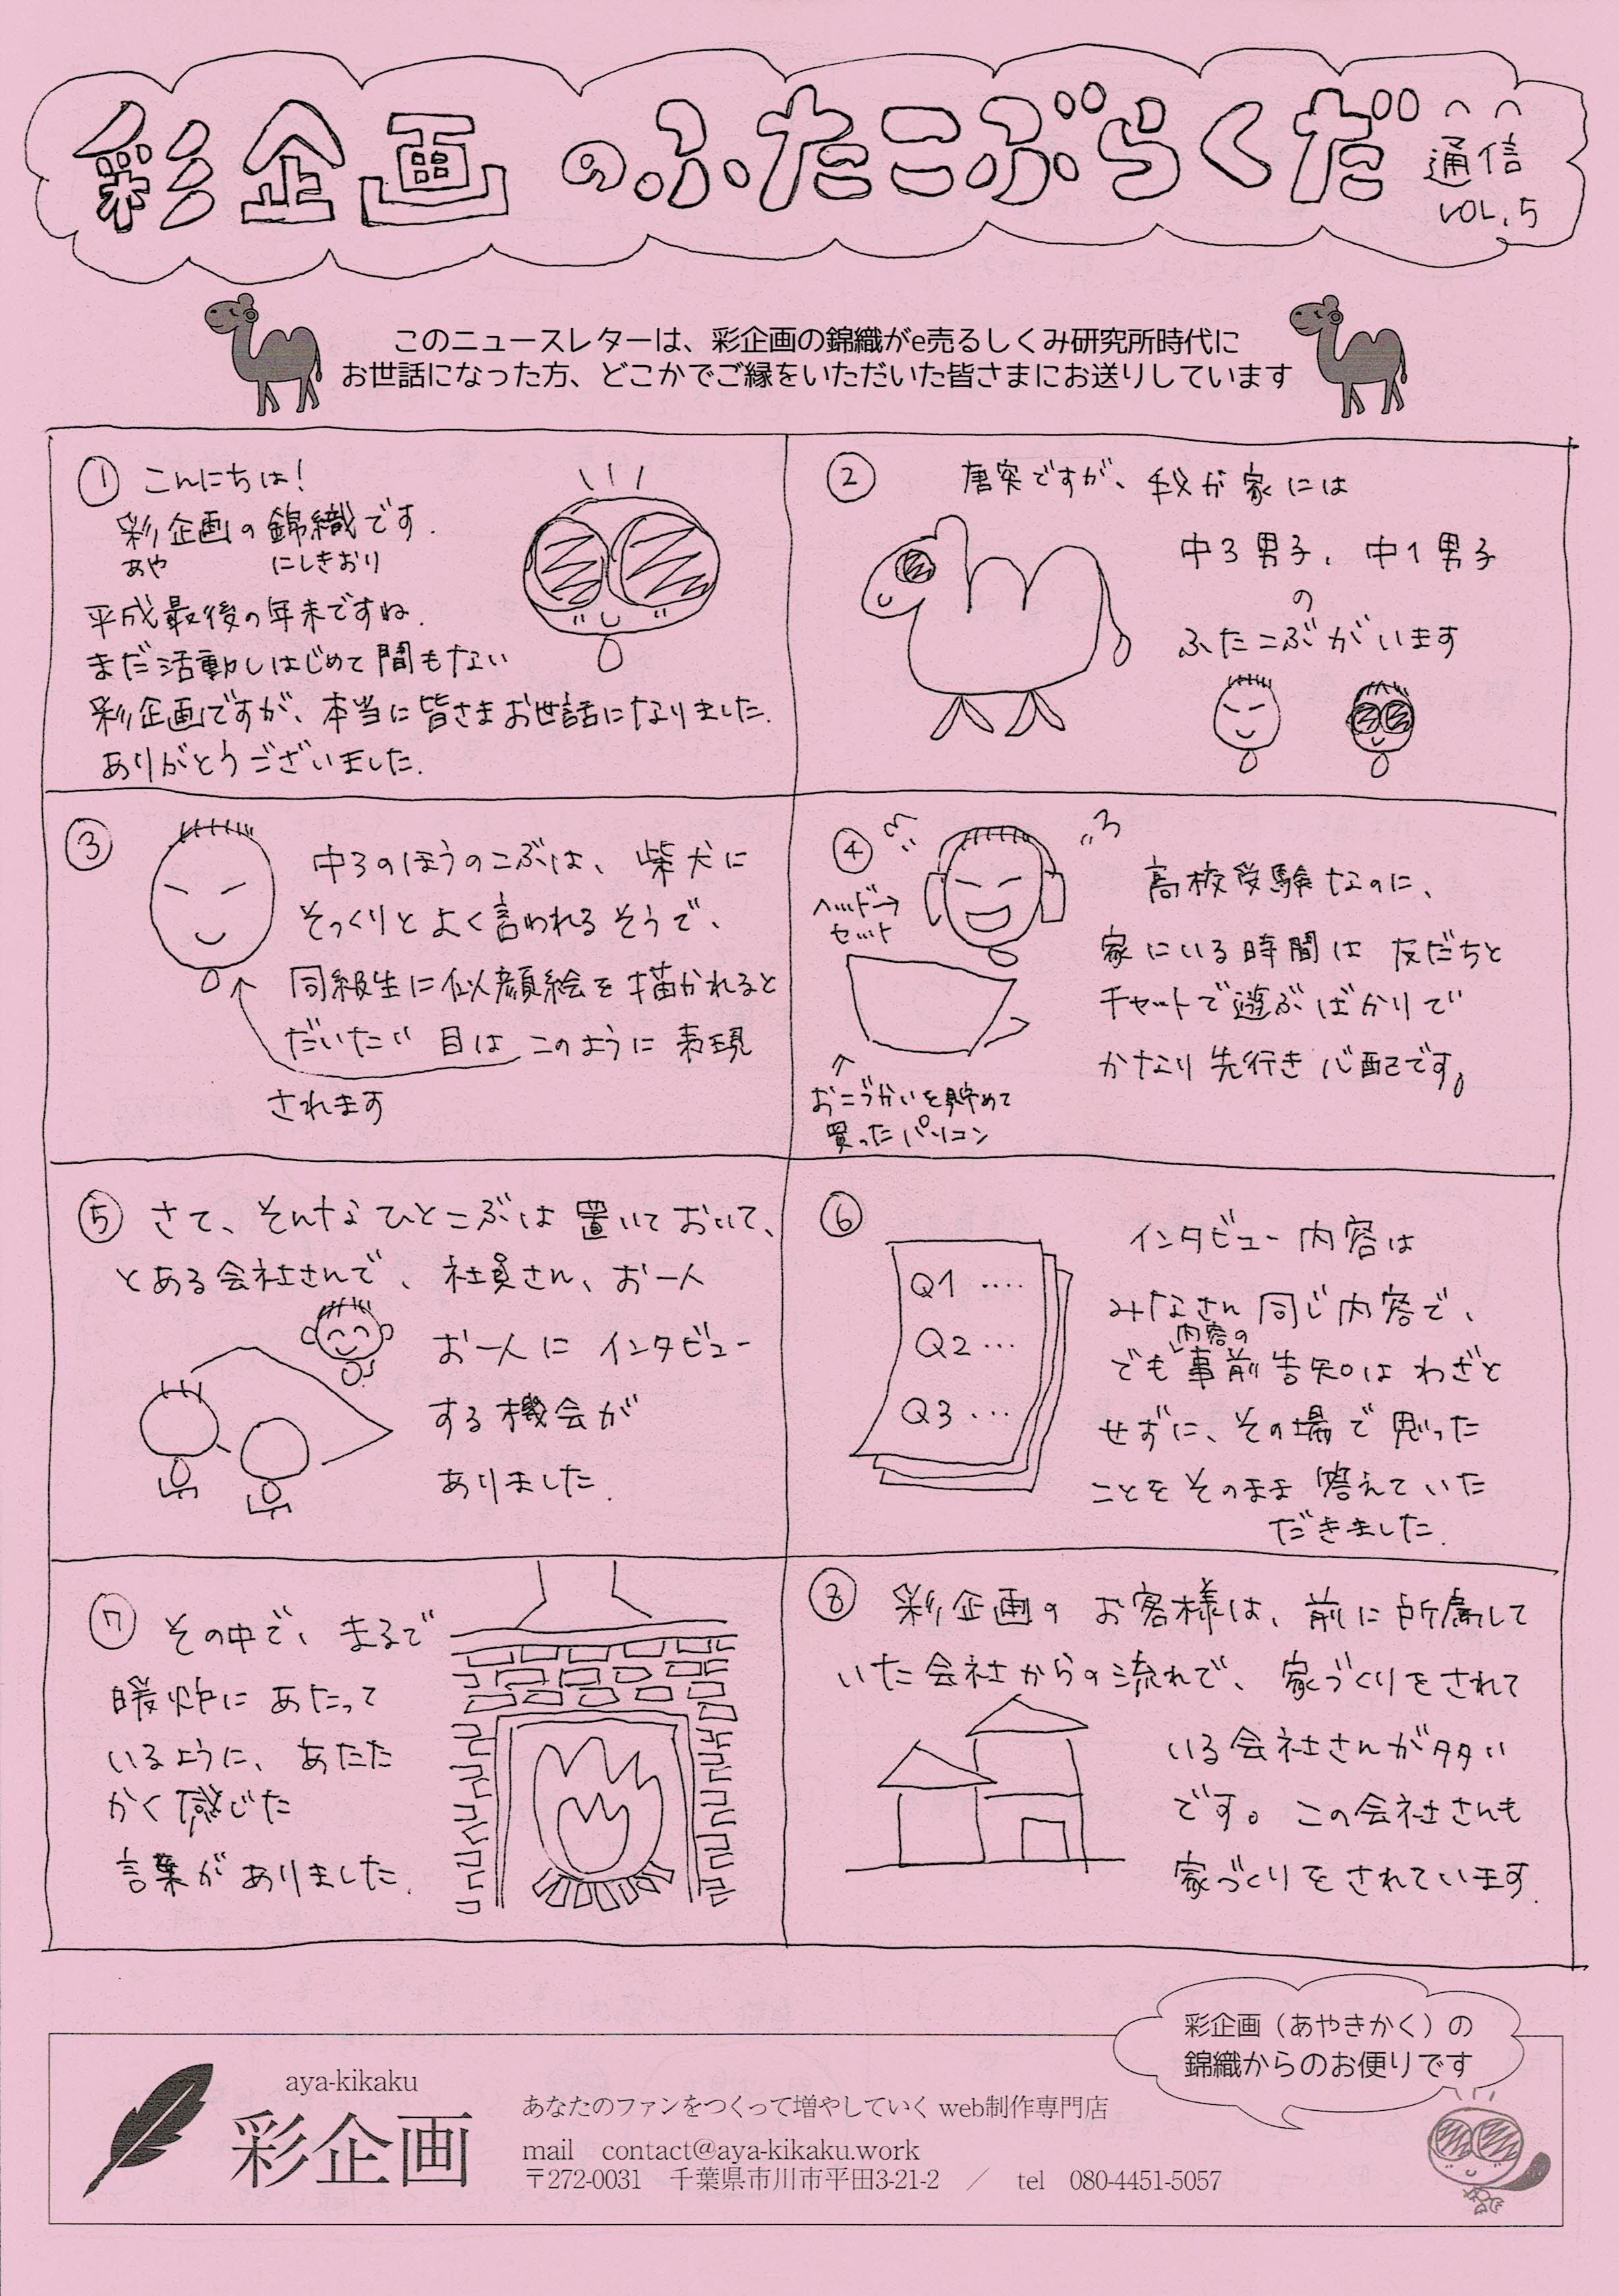 彩企画のふたこぶらくだ
通信
VOL.5
このニュースレターは、彩企画の錦織がe売るしくみ研究所時代に
お世話になった方、どこかでご縁をいただいた皆さまにお送りしています
① こんにちは!
彩企画の錦織です.
あや にしきおり
平成最後の年末ですね.
まだ活動しはじめて間もない
彩企画ですが、本当に皆さまお世話になりました.
ありがとうございました.
② 唐突ですが、我が家には
中3男子、中1男子
の
ふたこぶがいます
③ 中3のほうのこぶは、柴犬に
そっくりとよく言われるそうで、
同級生に似顔絵を描かれると
だいたい 目は このように 表現
されます
④
ヘッド→
セット
高校受験なのに、
家にいる時間は 友だちと
チャットで遊ぶばかりで
かなり先行き心配です。
↑
おこづかいを貯めて
買ったパソコン
⑤ さて、そんなひとこぶは置いておいて、
とある会社さんで、社員さん、お一人
お一人に インタビュー
する機会が
ありました.
⑥
Q1 ....
Q2 ...
Q3 ...
インタビュー内容は
みなさん同じ内容で、
内容の
でも事前告知はわざと
せずに、その場で思った
ことをそのまま答えていた
だきました.
⑦ その中で、まるで
暖炉にあたって
いるように、あたた
かく感じた
言葉がありました.
⑧ 彩企画の お客様は、前に所属して
いた会社からの流れで、家づくりをされて
いる会社さんが多い
です。この会社さんも
家づくりをされています.
彩企画（あやきかく）の
錦織からのお便りです
aya-kikaku
彩企画
あなたのファンをつくって増やしていく web制作専門店
mail contact@aya-kikaku.work
〒272-0031 千葉県市川市平田3-21-2 ／ tel 080-4451-5057